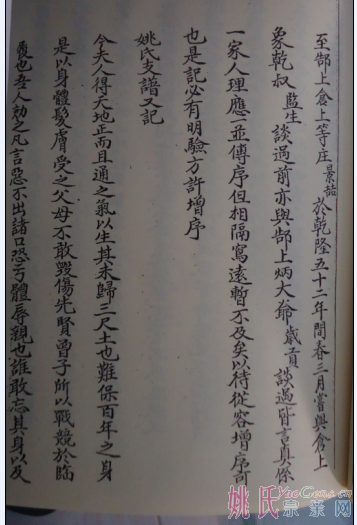 至郜上倉上等庄景喆於乾隆五十二年間春三月嘗與倉上
象乾叔監生談過前亦與郜上炳大爺歲貢談過皆言真保
一家人理應並傳序但相隔寫遠暫不及矣以待從容增序可
也是記必有明驗方許增序
姚氏支譜又記
今夫人得天地正而且通之氣以生其未歸三尺土也難保百年之身
是以身體髮膚受之父母不敢毀傷先賢曾子所以戰競於臨
覆也吾人勉之凡言惡不出諸口恐亏體辱親也誰敢忘其身以及
姚氏宗亲网
YaoGens.cn